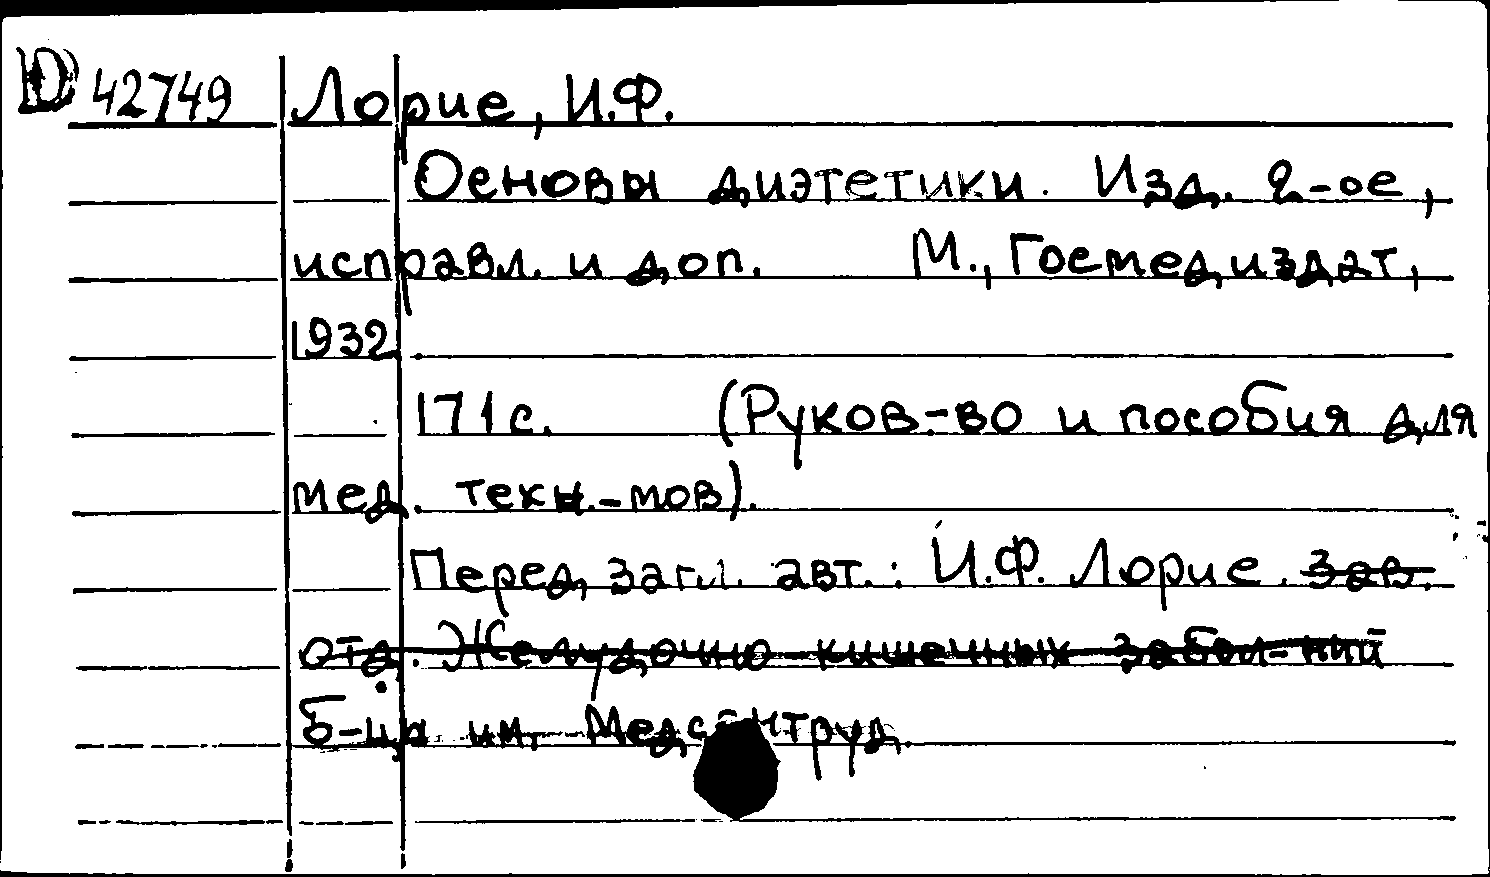 D 42749 Лорие, И.Ф.
Основы диэтетики. Изд. 2-ое,
исправл. и доп. М., Госмедиздат,
1932.
171с. (Руков.-во и пособия для
мед. техн.-мов).
Перед загл. авт.: И.Ф. Лорие. зав.
отд. Желудочно-кишечных забол-ний
Б-цы им. Медсантруд.